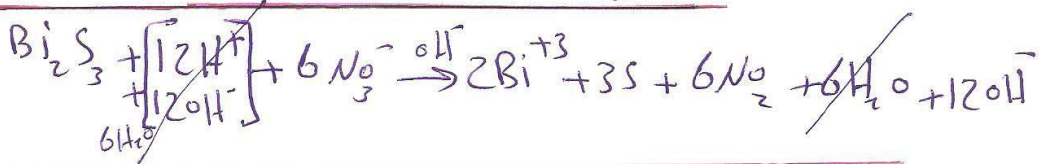 Bi₂S₃ + [12H⁺ + 6NO₃⁻ OH⁻→ 2Bi⁺³ + 3S + 6NO₂ + 6H₂O + 12OH⁻
+12OH⁻]
6H₂O